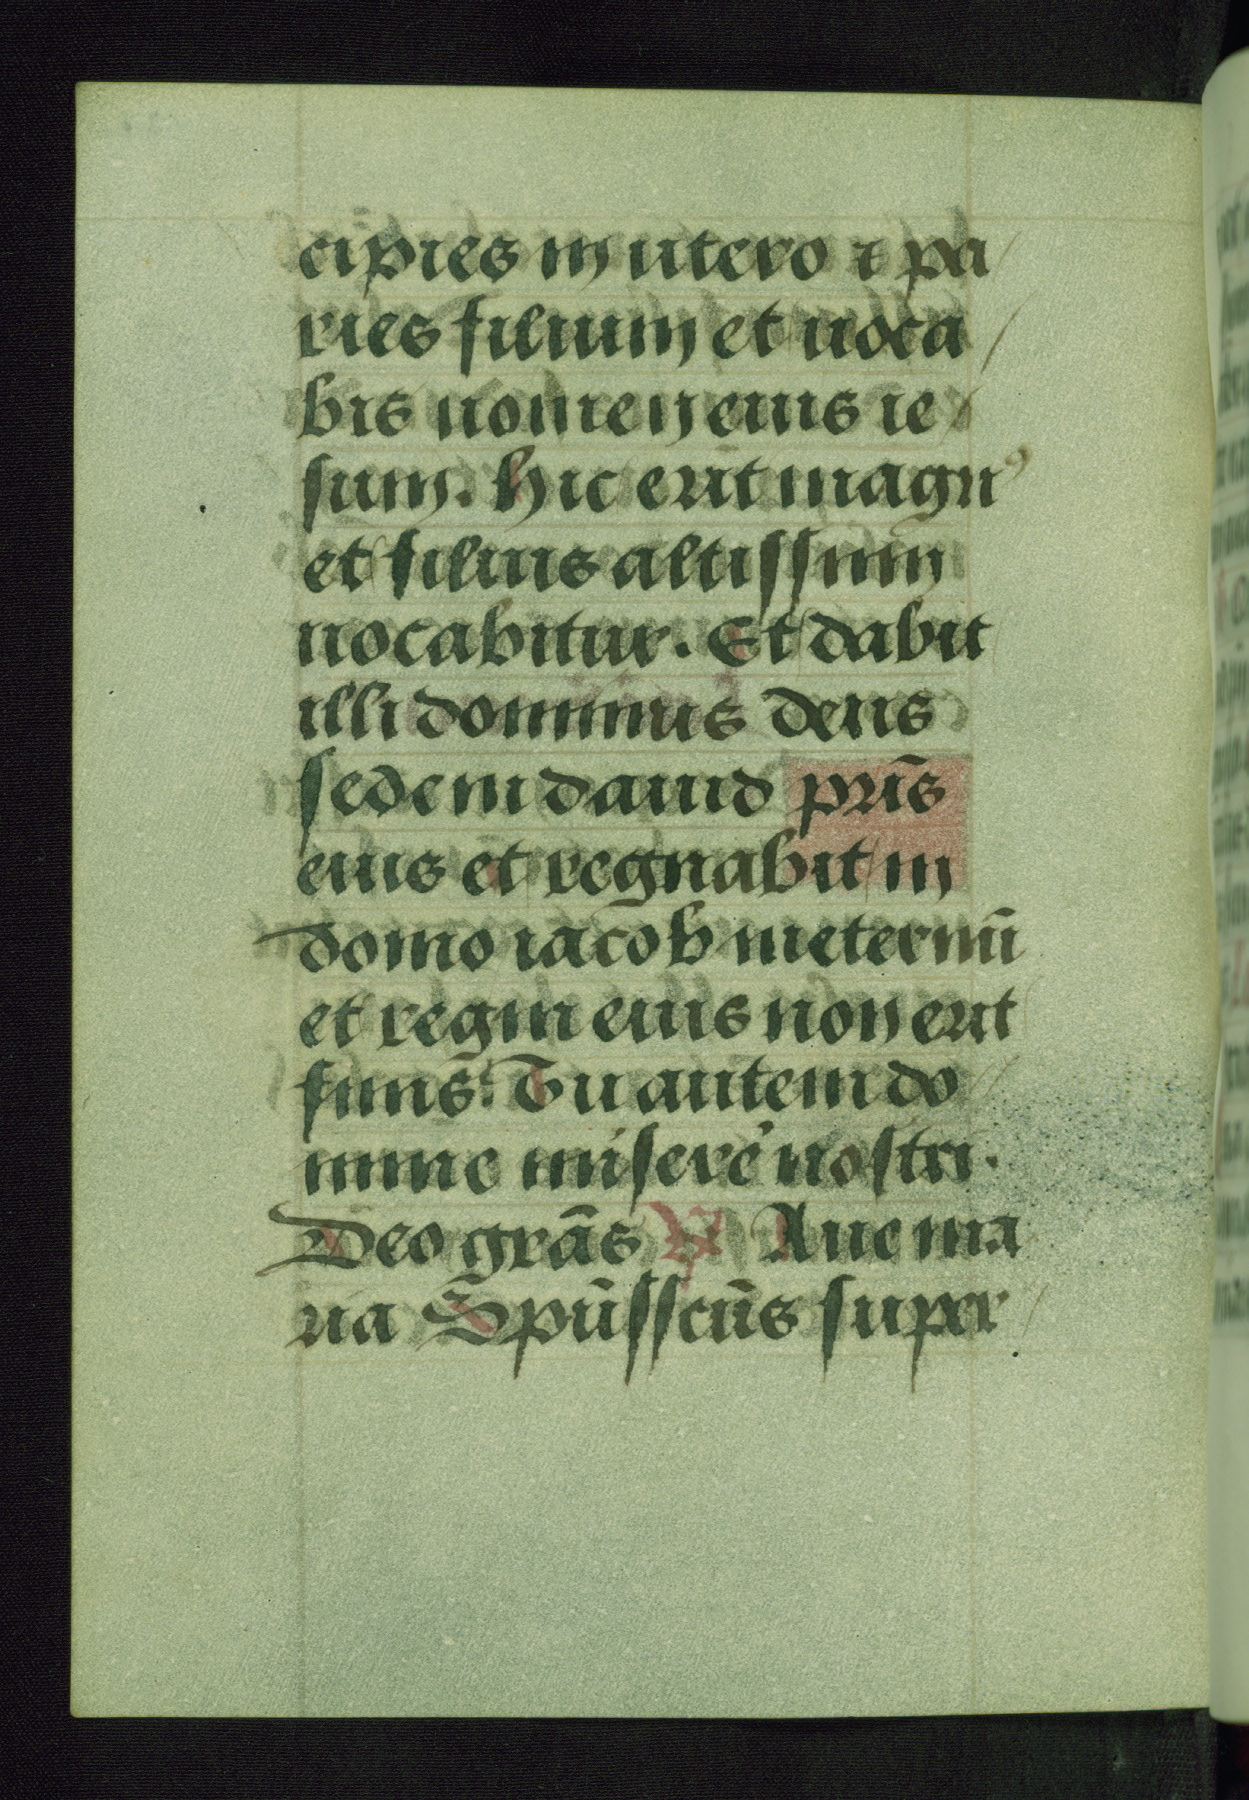 cipies in utero ⁊ pa
ries filium et uoca
bis nomen eius ie
sum. Hic erit magnꝰ
et filius altissimi
uocabitur. Et dabit
illi dominus deus
sedem dauid pr̄is
eius et regnabit in
domo iacob ineternū
et regni eius non erit
finis. Tu autem do
mine miserere nostri.
Deo grās ℟ Aue ma
ria Spūs scūs super